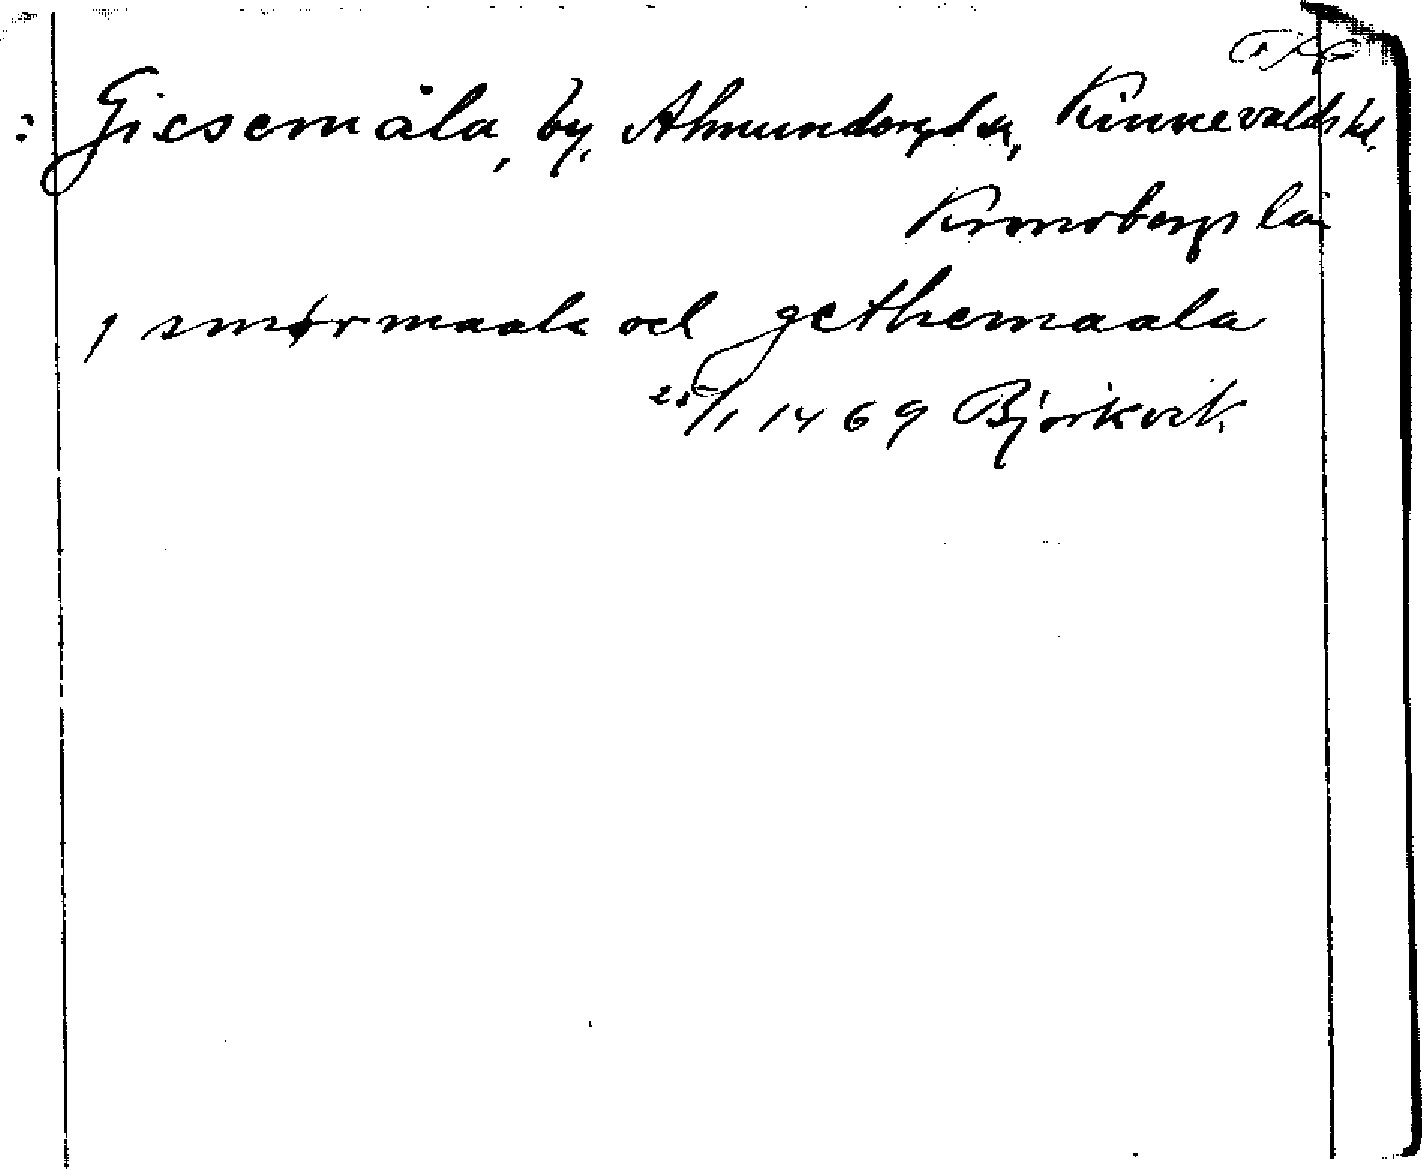 : Giesemåla, by, Almundsryds sn, Kinnevalds hd.
Kronobergs län
j smørmaala ock gethemaala
25/1 1469 Björkvik